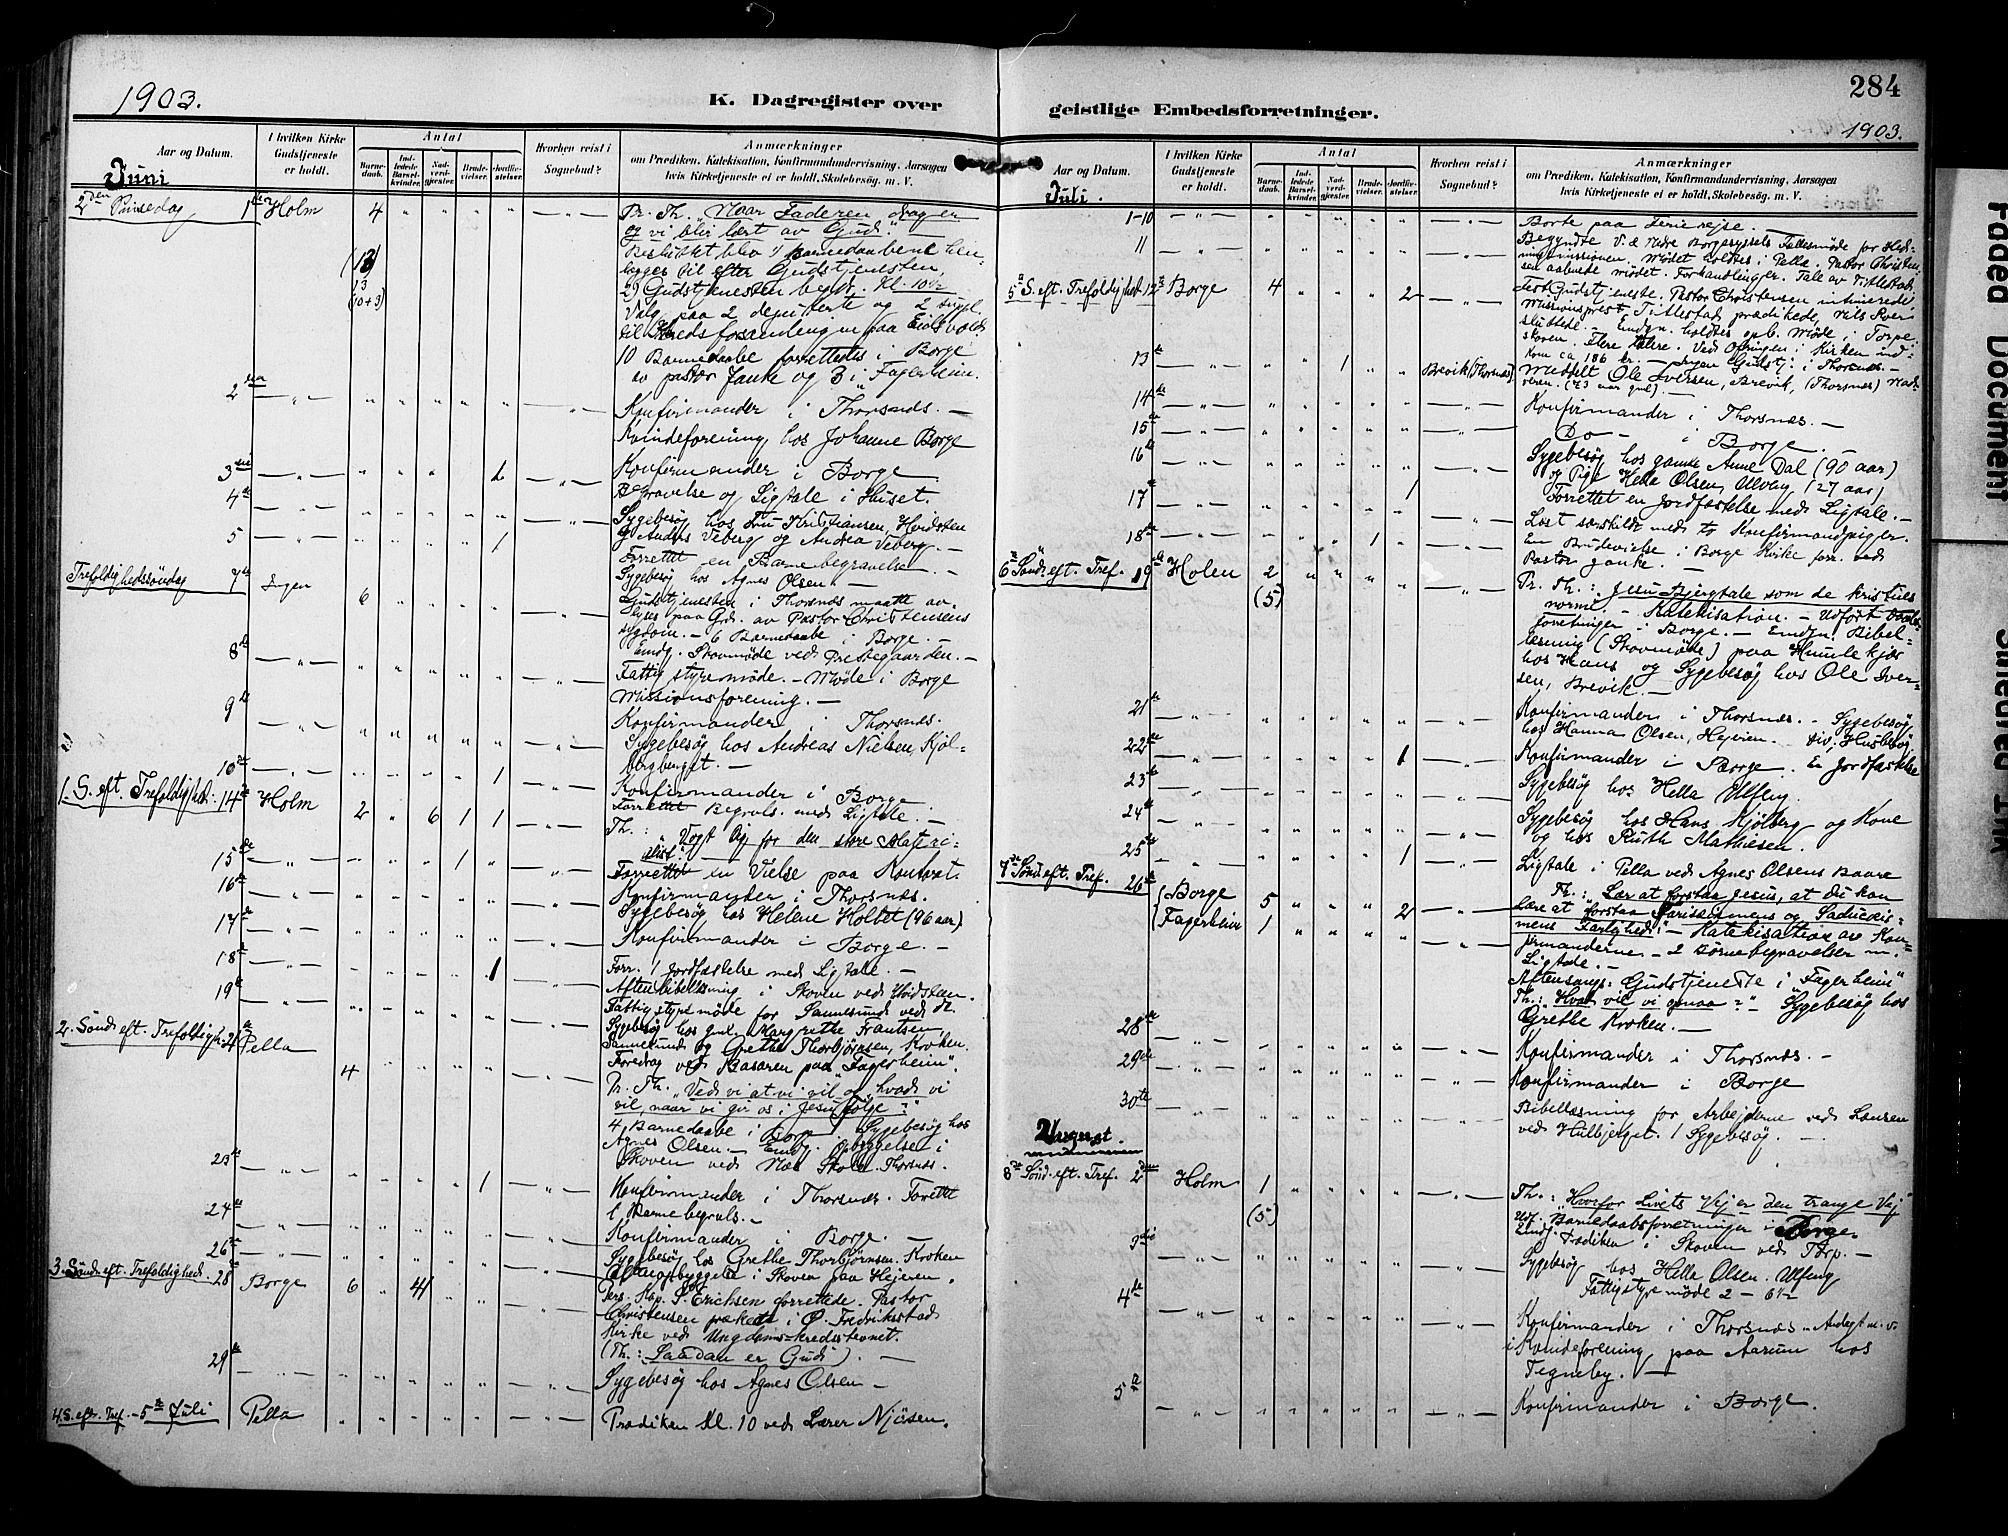 1903.
K. Dagregister over
Aar og Datum.
I hvilken Kirke Gudstjeneste er holdt.
Antal
Barne-daab.
Ind-ledede Barsel-kvinder.
Nad-verd-gjester.
Brude-vielser.
Jordfæ-stelser.
Hvorhen reist i Sognebud?
Anmærkninger
om Prædiken, Katekisation, Konfirmandundervisning, Aarsagen
hvis Kirketjeneste ei er holdt, Skolebesøg, m. V.
Juni
2den Pinsedag 1ste Holm 4
Pr. Th. "Naar Faderen drager
og vi blir lært av Gud."
Besluttet blev 1) Barnedaabene hen-
lægges til efter Gudstjenesten,
(13)
13
(10+3)
2) Gudstjenesten beg. Kl. 10½
Valg paa 2 deputerte og 2 suppl.
til Kredsforsamlingen paa Eidsvold
10 Barnedaabe forrettedes i Borge
av pastor Janke og 3 i "Fagerheim.
2den
Konfirmander i Thorsnæs. —
Kvindeforening hos Johanne Borge
3die
Konfirmander i Borge
4de
Begravelse og Ligtale i Huset.
Sygebesøg hos Fru Kristiansen, Hvidsten
5
og Anders Veberg og Andrea Veberg. —
Forrettet en Barnebegravelse.
Trefoldighedssöndag 7de Ingen 6
Sygebesøg hos Agnes Olsen. —
Gudstjenesten i Thorsnæs maatte av-
lyses paa Grd. av Pastor Christensens
sygdom. — 6 Barnedaabe i Borge. —
Emdg. Skovmöde ved Prestegaarden. —
8de
Fattigstyremöde. — Möde i Borge
Missionsforening. —
9de
Konfirmander i Thorsnæs.
Sygebesøg hos Andreas Nielsen, Kjöl-
bergberget. —
10de
Konfirmander i Borge
1. S. eft. Trefoldighed. 14de Holm 2 6 1 1
Forrettet Begravls. med Ligtale. —
Th.: "Vogt dig for den store Materi-
alist." —
15de
Forrettet en Vielse paa Kontoret.
16de
Konfirmander i Thorsnæs.
Sygebesøg hos Helene Holtet (96 aar).
17de
Konfirmander i Borge. —
18de
Forr. 1 Jordfæstelse med Ligtale. —
Aftenbibellæsning i Skoven ved Hvidsten.
19de
Fattigstyremöde for Sannesund ved do.
Sygebesøg hos gml. Margrethe Frantsen,
2. Sönd. eft. Trefoldigh. 21de Pella 4
Sannesund og Grethe Thorbjörnsen, Kroken.
Foredrag ved Basaren paa "Fagerheim".
Pr. Th. "Ved vi at vi vil og hvad vi
vil, naar vi gir os i Jesu Følge?"
4 Barnedaabe i Borge. Sygebesøg hos
Agnes Olsen. — Emdg. opbyggelse i
Skoven ved Næs Skole, Thorsnæs.
23de
Konfirmander i Thorsnæs. Forrettet
1 Barnebegravls. —
24de
Konfirmander i Borge. —
26de
Sygebesøg hos Grethe Thorbjørnsen, Kroken
3. Sönd. eft. Trefoldighed. 28de Borge 6 4
opbyggelse i Skoven paa Hejeren.
Pers. Kap. S. Erichsen forrettede. Pastor
Christensen prækede i Ö. Fredrikstad
Kirke ved Ungdoms-kredsstevnet.
(Th.: Saadan er Gud!). —
29de
Sygebesøg hos Agnes Olsen —
4. S. eft. Tref. — 5te Juli Pella
Prædiken Kl. 10 ved Lærer Njösen.
284
1903.
geistlige Embedsforretninger.
Aar og Datum.
I hvilken Kirke Gudstjeneste er holdt.
Antal
Barne-daab.
Ind-ledede Barsel-kvinder.
Nad-verd-gjester.
Brude-vielser.
Jordfæ-stelser.
Hvorhen reist i Sognebud?
Anmærkninger
om Prædiken, Katekisation, Konfirmandundervisning, Aarsagen
hvis Kirketjeneste ei er holdt, Skolebesøg, m. V.
Juli.
1-10
Borte paa Feriereise. —
11
Begyndte V. & Nedre Borgesyssels Fællesmöde for Hed-
ningemissionen. Mödet holdtes i Pella. Pastor Christen-
sen aabnede mödet. Forhandlinger. Tale av Titlestad.
5te S. eft. Trefoldighed. 12te Borge 4 2
Fest Gudstjeneste. Pastor Christensen intimerede
Missionsprest, Titlestad prædikede, Nils
sluttede. — Emdgn. holdtes opb. Möde i Torpe-
skoven. Flere talere. Ved Ofringen i Kirken ind-
kom ca 186 kr. — Ingen Gudstj. i Thorsnæs. —
13de 1 Brevik (Thorsnæs)
Meddelt Ole Iversen, Brevik, (Thorsnæs) Nad-
veren. (73 aar gml.)
14de
Konfirmander i Thorsnæs. —
15de
Do — i Borge —
16de
Sygebesøg hos gamle Anne Dal (90 aar)
og Pige Hella Olsen, Ulveng (27 aar)
17de 1
Forrettet en Jordfæstelse med Ligtale. —
Læst særskildt med to Konfirmandpiger.
18de 1
En Brudevielse i Borge Kirke forr. ved
Pastor Janke. —
6te Sönd. eft. Tref. 19de Holen 2
(5)
Pr. Th.: Jesu Bjergtale som de kristnes
norm. — Katekisation. — Udfört Daabs-
forretninger i Borge. — Emdgn. Bibel-
læsning (Skovmöde) paa Humlekjær
hos Hans og Sygebesøg hos Ole Iver-
sen, Brevik. —
21de
Konfirmander i Thorsnæs. Sygebesøg
hos Hanna Olsen, Hejeren. div. Husbesøg
22de 1
Konfirmander i Borge. En Jordfæstelse
23de
Sygebesøg hos Hella Ulfeng.
24de
Sygebesøg hos Hans Kjölberg og Kone
og hos Ruth Mathiesen.
25de 1
Ligtale i Pella ved Agnes Olsens Baare
7de Sönd. eft. Tref. 26de Borge 5 2
Fagerheim 1
Th.: Lær at forstaa Jesus, at Du kan
lære at forstaa Farisæismens og Saducæis-
mens Farlighed! — Katekisation av Kon-
firmanderne. — 2 Börnebegravelser m.
Ligtale. —
Aftensangs-Gudstjeneste i "Fagerheim"
Th.: "Hvad vil vi opnaa?" Sygebesøg hos
Grethe Kroken. —
28de
Konfirmander i Thorsnæs. —
29de
Konfirmander i Borge
30te
Bibellæsning for Arbejderne ved Lansen
ved Hulbjerget. 1 Sygebesøg. —
August.
8de Sönd. eft. Tref. 2den Holm 1
(5)
Th.: "Hvorfor Livets Vej er den trange Vej"
Utf. Barnedaabsforretninger i Borge.
Emdg. Prædiken i Skoven ved Torp. —
3die
Sygebesøg hos Hella Olsen, Ulfeng
Fattigstyremöde 2 — 6½
4de
Konfirmander i Thorsnæs. Andagt m. v.
i Kvindeforening paa Aarum hos
Tegneby. —
5te
Konfirmander i Borge.
Faded Document
Smeared Ink